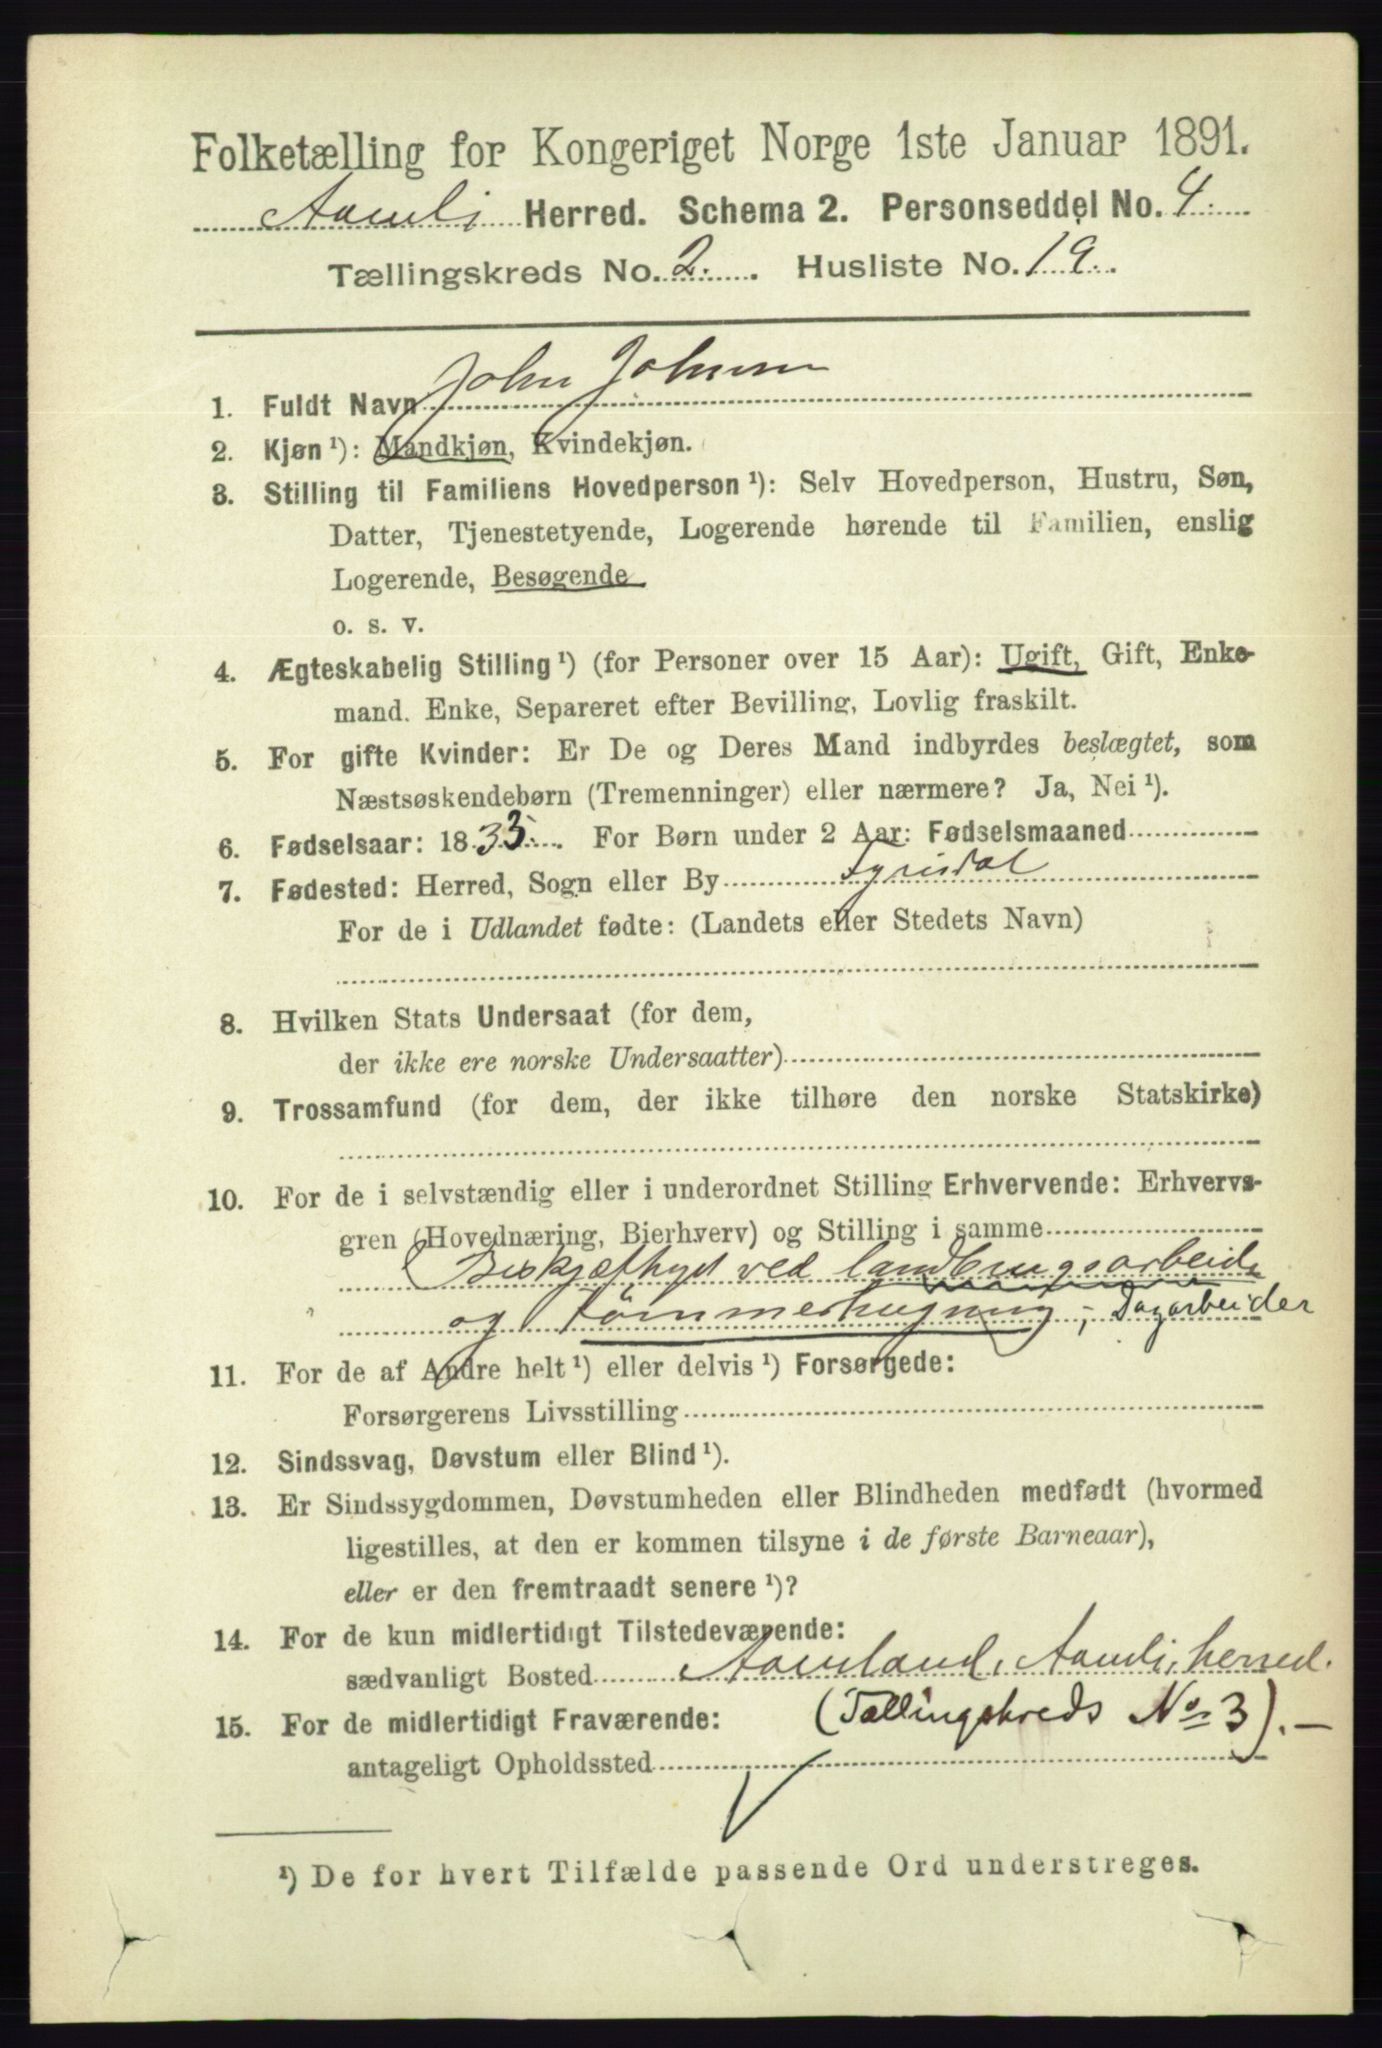 Folketælling for Kongeriget Norge 1ste Januar 1891.
Aamli Herred. Schema 2. Personseddel No. 4.
Tællingskreds No. 2. Husliste No. 19.
1. Fuldt Navn John Johnsen
2. Kjøn ¹): Mandkjøn, Kvindekjøn.
3. Stilling til Familiens Hovedperson ¹): Selv Hovedperson, Hustru, Søn,
Datter, Tjenestetyende, Logerende hørende til Familien, enslig
Logerende, Besøgende
o. s. v.
4. Ægteskabelig Stilling ¹) (for Personer over 15 Aar): Ugift, Gift, Enke-
mand. Enke, Separeret efter Bevilling, Lovlig fraskilt.
5. For gifte Kvinder: Er De og Deres Mand indbyrdes beslægtet, som
Næstsøskendebørn (Tremenninger) eller nærmere? Ja, Nei ¹).
6. Fødselsaar: 1833. For Børn under 2 Aar: Fødselsmaaned
7. Fødested: Herred, Sogn eller By Tyrisdal
For de i Udlandet fødte: (Landets eller Stedets Navn)
8. Hvilken Stats Undersaat (for dem,
der ikke ere norske Undersaatter)
9. Trossamfund (for dem, der ikke tilhøre den norske Statskirke)
10. For de i selvstændig eller i underordnet Stilling Erhvervende: Erhvervs-
gren (Hovednæring, Bierhverv) og Stilling i samme
Beskjæftiget ved landbrugsarbeide
og Tømmerhugning; Dagarbeider
11. For de af Andre helt ¹) eller delvis ¹) Forsørgede:
Forsørgerens Livsstilling
12. Sindssvag, Døvstum eller Blind ¹).
13. Er Sindssygdommen, Døvstumheden eller Blindheden medfødt (hvormed
ligestilles, at den er kommen tilsyne i de første Barneaar),
eller er den fremtraadt senere ¹)?
14. For de kun midlertidigt Tilstedeværende:
sædvanligt Bosted Aamland, Aamli herred.
15. For de midlertidigt Fraværende: (Tællingskreds No 3).—
antageligt Opholdssted
¹) De for hvert Tilfælde passende Ord understreges.